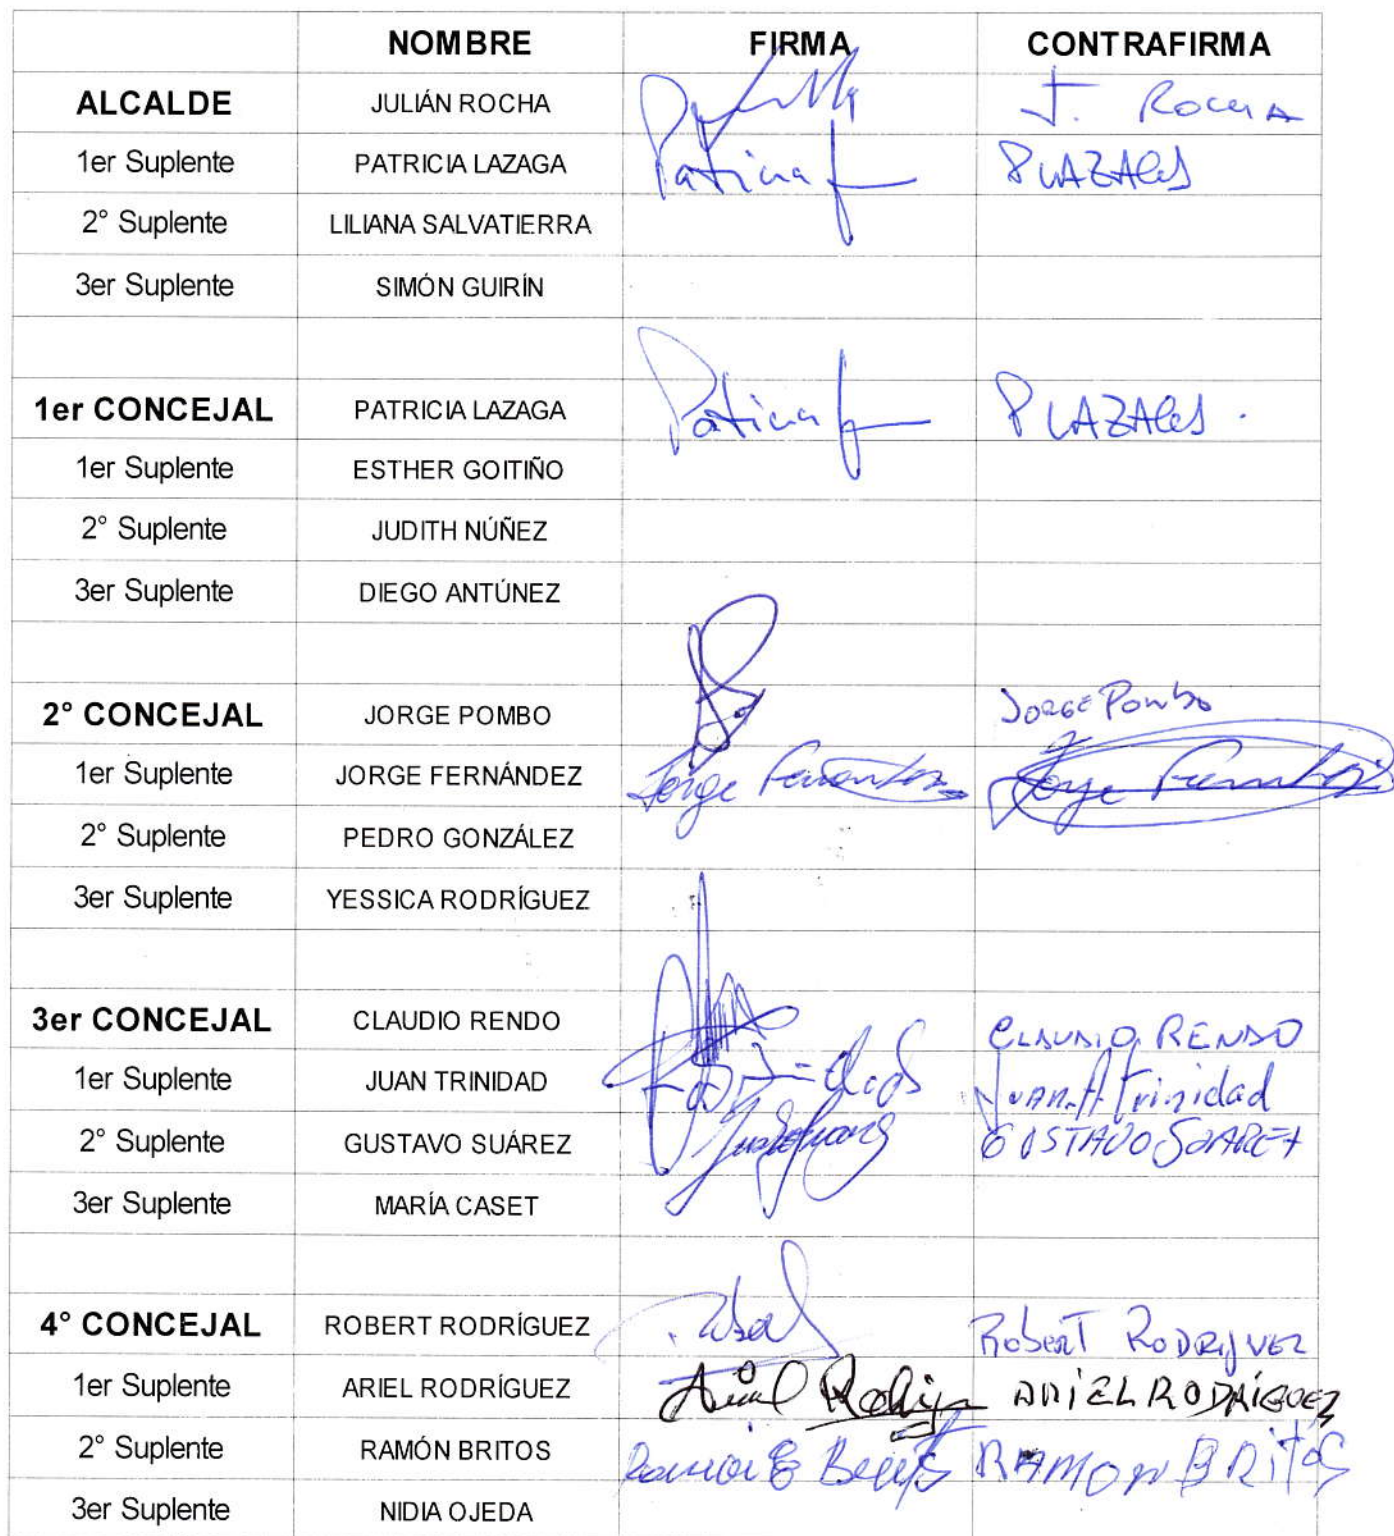 NOMBRE FIRMA CONTRAFIRMA
ALCALDE JULIÁN ROCHA J. ROCHA
1er Suplente PATRICIA LAZAGA Patricia
2° Suplente LILIANA SALVATIERRA
3er Suplente SIMÓN GUIRÍN
1er CONCEJAL PATRICIA LAZAGA Patricia
1er Suplente ESTHER GOITIÑO
2° Suplente JUDITH NÚÑEZ
3er Suplente DIEGO ANTÚNEZ
2° CONCEJAL JORGE POMBO JORGE Pombo
1er Suplente JORGE FERNÁNDEZ Jorge Fernandez Jorge Fernandez
2° Suplente PEDRO GONZÁLEZ
3er Suplente YESSICA RODRÍGUEZ
3er CONCEJAL CLAUDIO RENDO CLAUDIO RENDO
1er Suplente JUAN TRINIDAD JUAN.A Trinidad
2° Suplente GUSTAVO SUÁREZ GUSTAVO SUAREZ
3er Suplente MARÍA CASET
4° CONCEJAL ROBERT RODRÍGUEZ RobeRT RODRIgUEZ
1er Suplente ARIEL RODRÍGUEZ Ariel ARIEL RODRÍGUEZ
2° Suplente RAMÓN BRITOS Ramon E Britos RAMON BRITOS
3er Suplente NIDIA OJEDA